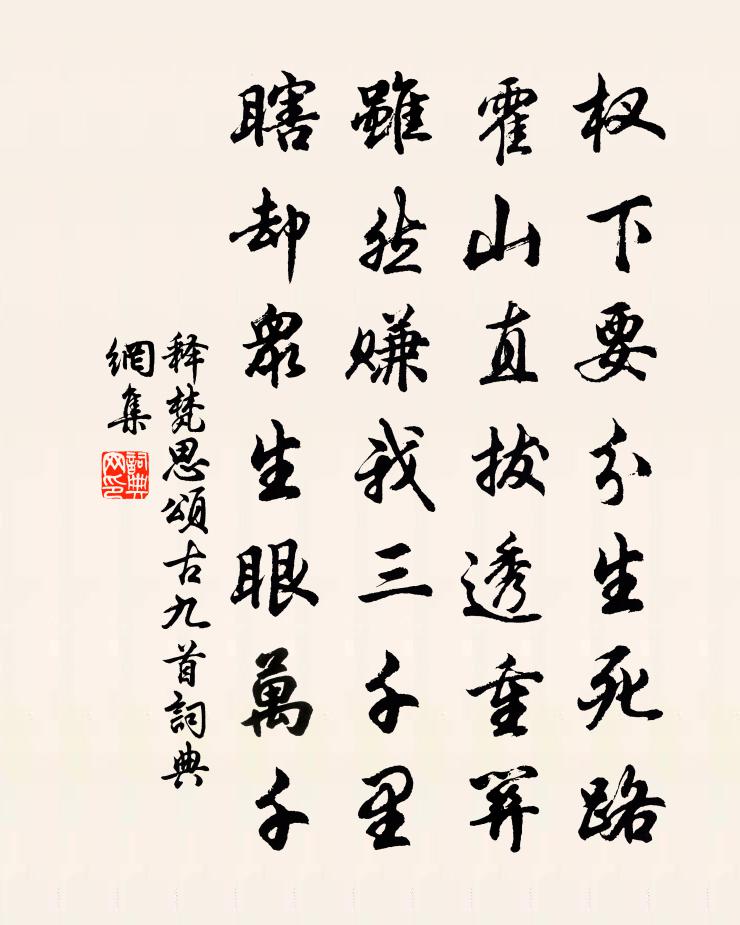 杈下要分生死路
霍山直拔透重關
雖然賺我三千里
瞎却眾生眼萬千
释梵思頌古九首詞典
網集
詞典网印